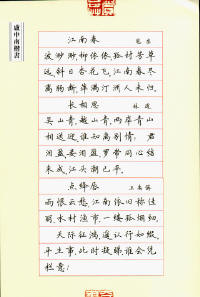 卢中南楷书
江南春 寇准
波渺渺,柳依依,孤村芳草
远,斜日杏花飞。江南春尽
离肠断,蘋满汀洲人未归。
长相思 林逋
吴山青,越山青,两岸青山
相送迎,谁知离别情? 君
泪盈,妾泪盈,罗带同心结
未成,江头潮已平。
点绛唇 王禹偁
雨恨云愁,江南依旧称佳
丽。水村渔市,一缕孤烟细。
天际征鸿,遥认行如缀。
平生事,此时凝睇,谁会凭
栏意!